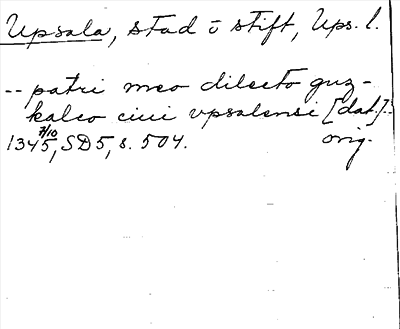 Upsala, stad o stift, Ups. l.
-- patri meo dilecto guz-
kalco ciui vpsalensi [dat.]..
1345 7/10, SD5, s. 504. orig.